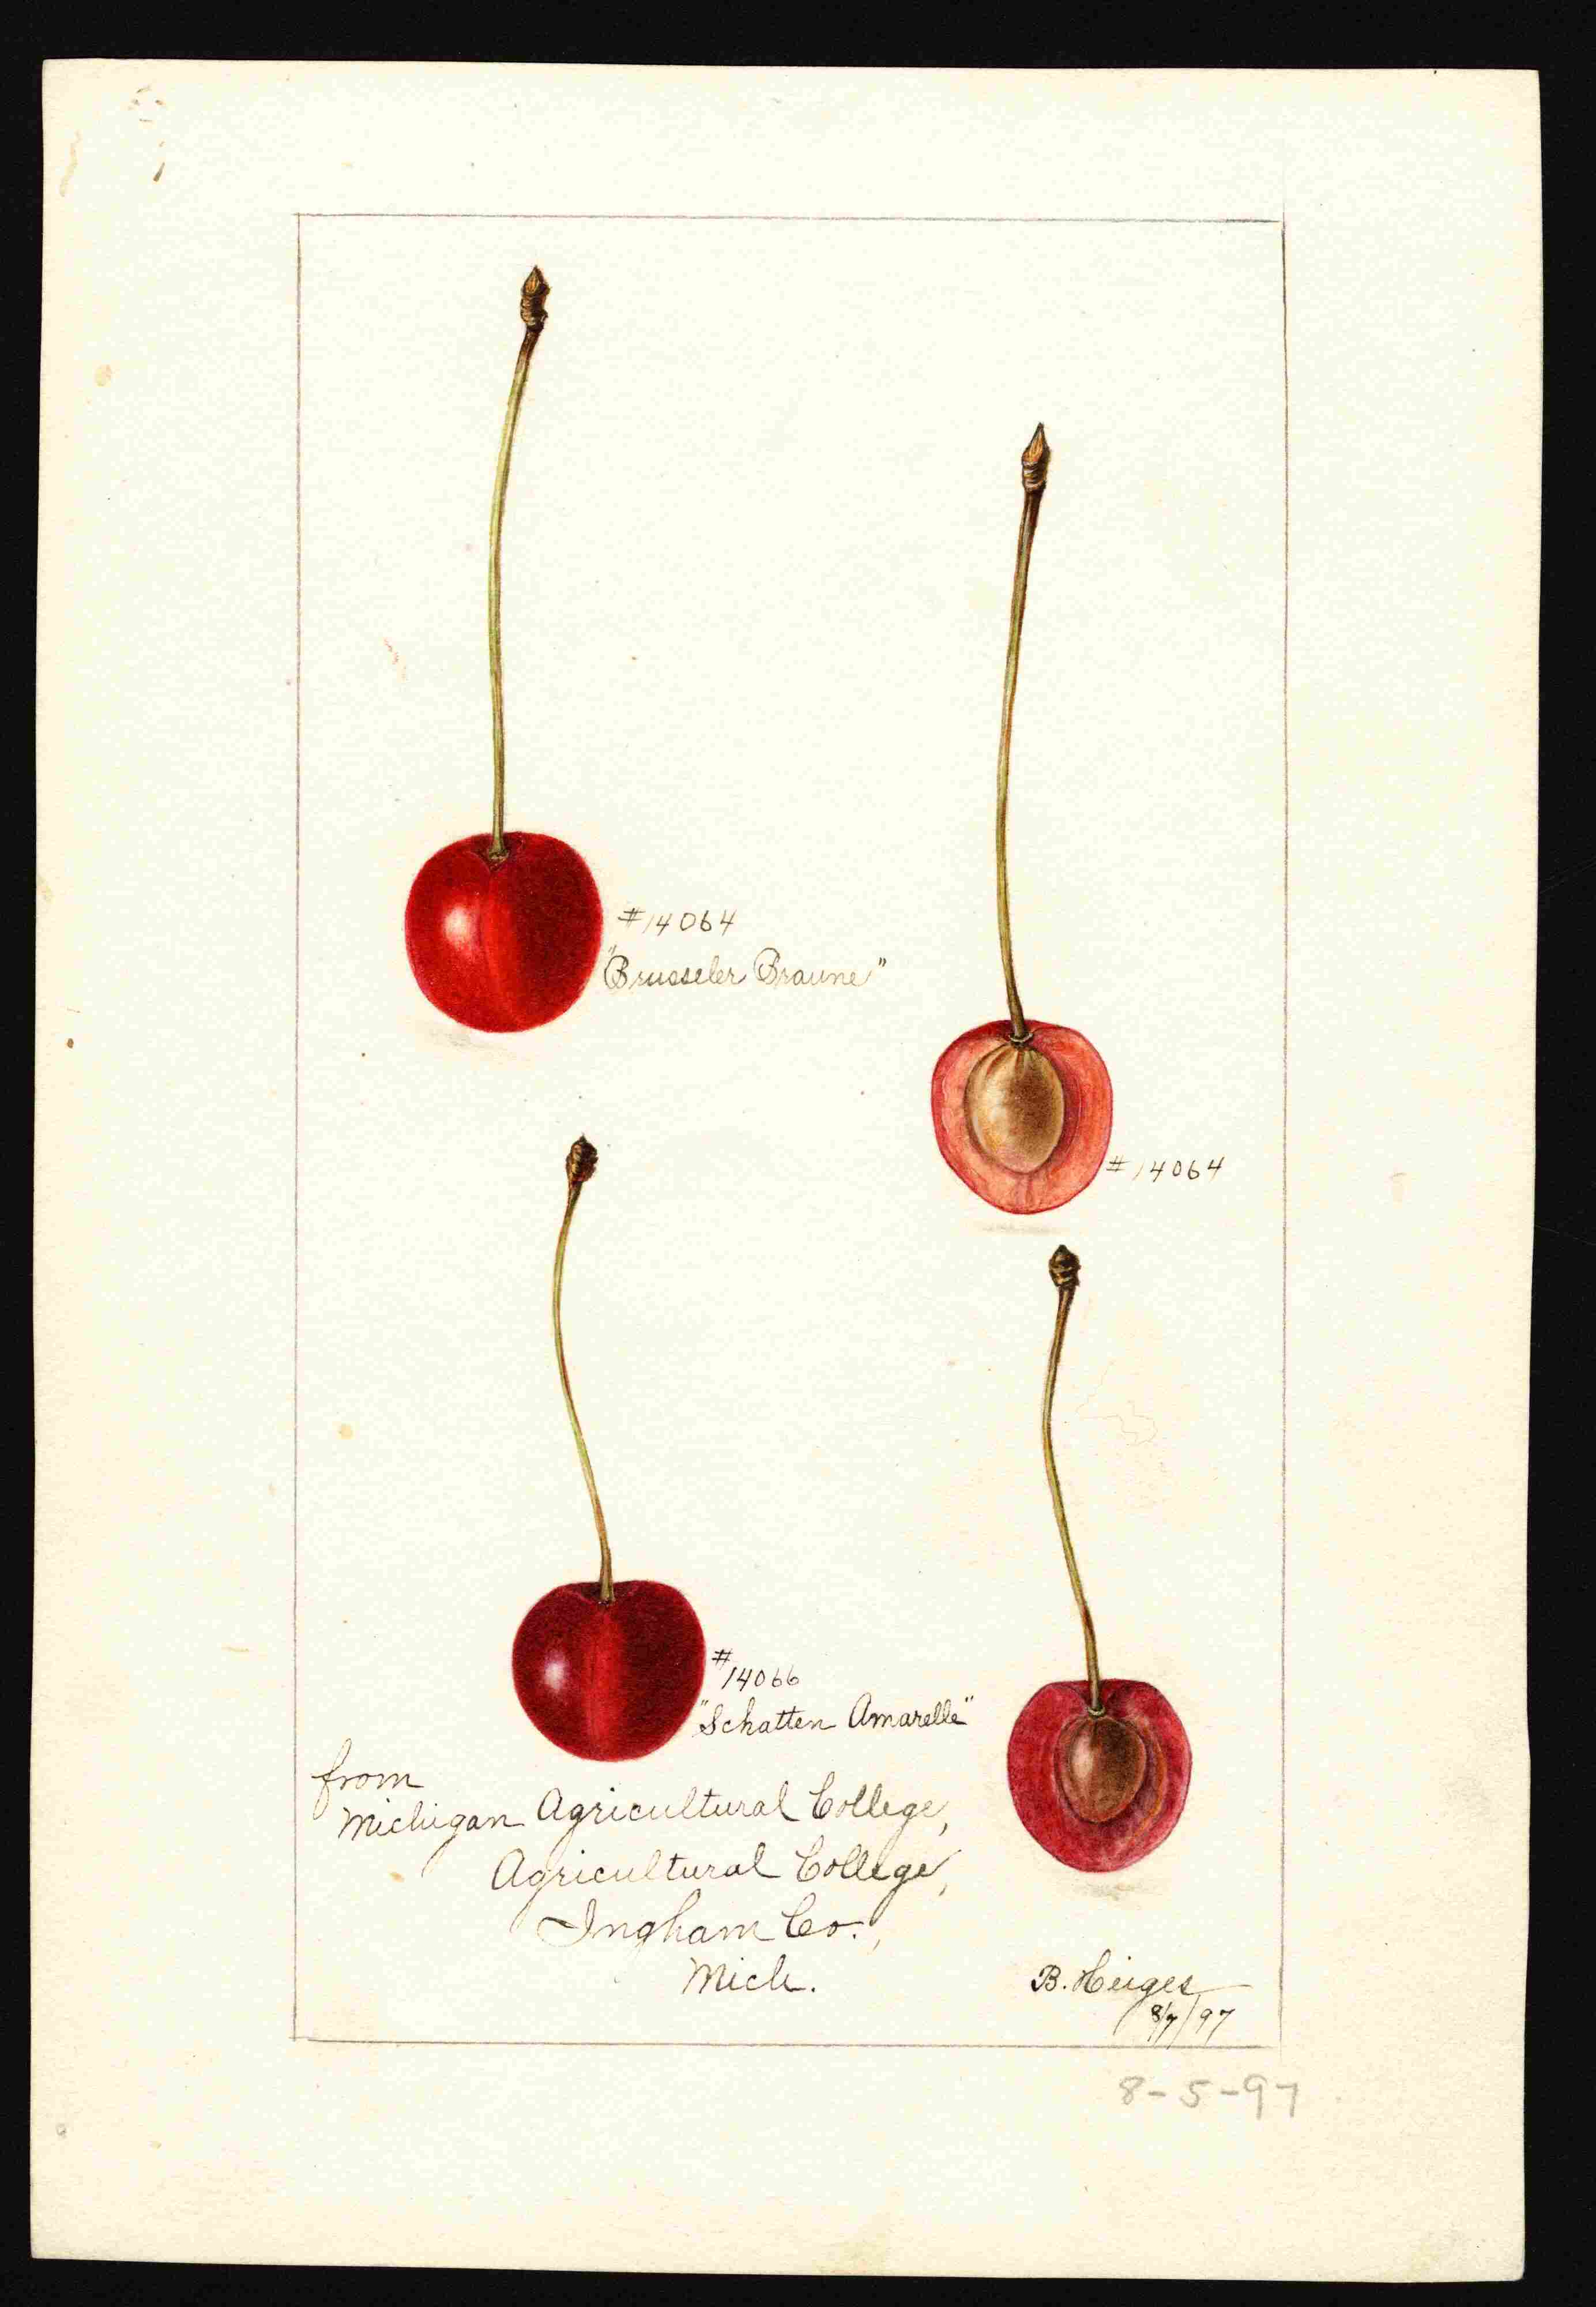 #14064
"Brusseler Braune"
#14064
#14066
"Schatten Amarelle"
from
Michigan Agricultural College,
Agricultural College,
Ingham Co.,
Mich.
B. Heiges
8/7/97
8-5-97